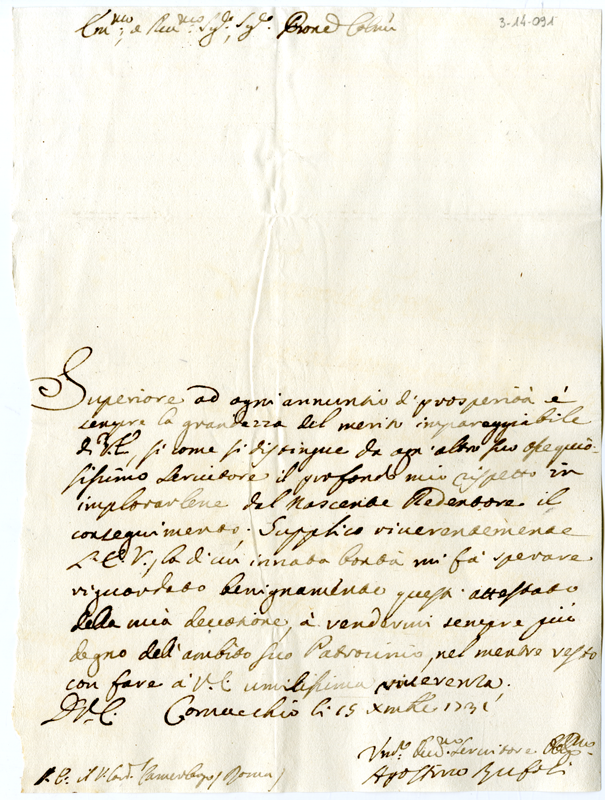 Em.mo, e Rev.mo Sig.r, Sig.r Prone Colmo
3-14-091
Superiore ad ogni annuntio di prosperità é
sempre la grandezza del merito impareggiabile
di V.E., si come si distingue da ogn'altro suo ossequio-
sissimo servitore il profondo mio rispetto in
implorarlene dal Nascente Redentore il
conseguimento; Supplico riverentemente
l'E.V., la di cui innata bontà mi fá sperare
riguardato benignamente quest'attestato
della mia devozione, à rendermi sempre più
degno dell'ambito suo Patrocinio, nel mentre resto
con fare à V.E. umilissima riverenza.
D.V.E. Comacchio li 15 Xmbre 1731
Um.o Dev.mo Servitore Obl.mo
Agostino
Sig.r Card. Camerlengo (Roma)